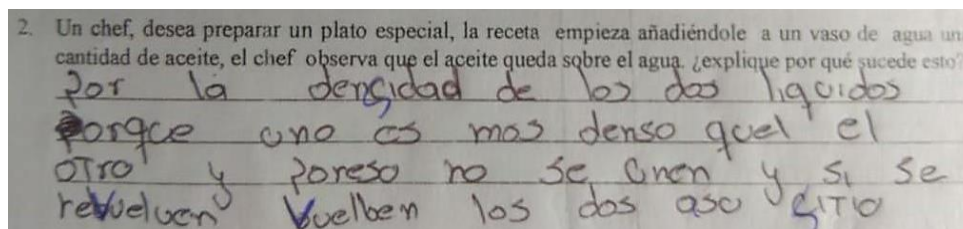 2. Un chef, desea preparar un plato especial, la receta empieza añadiéndole a un vaso de agua un
cantidad de aceite, el chef observa que el aceite queda sobre el agua. ¿explique por qué sucede esto?
Por la densidad de los dos liquidos
porqce uno es mas denso quel el
OTro y Poreso no se Unen y si se
revuelven Vuelben los dos aso SITIO